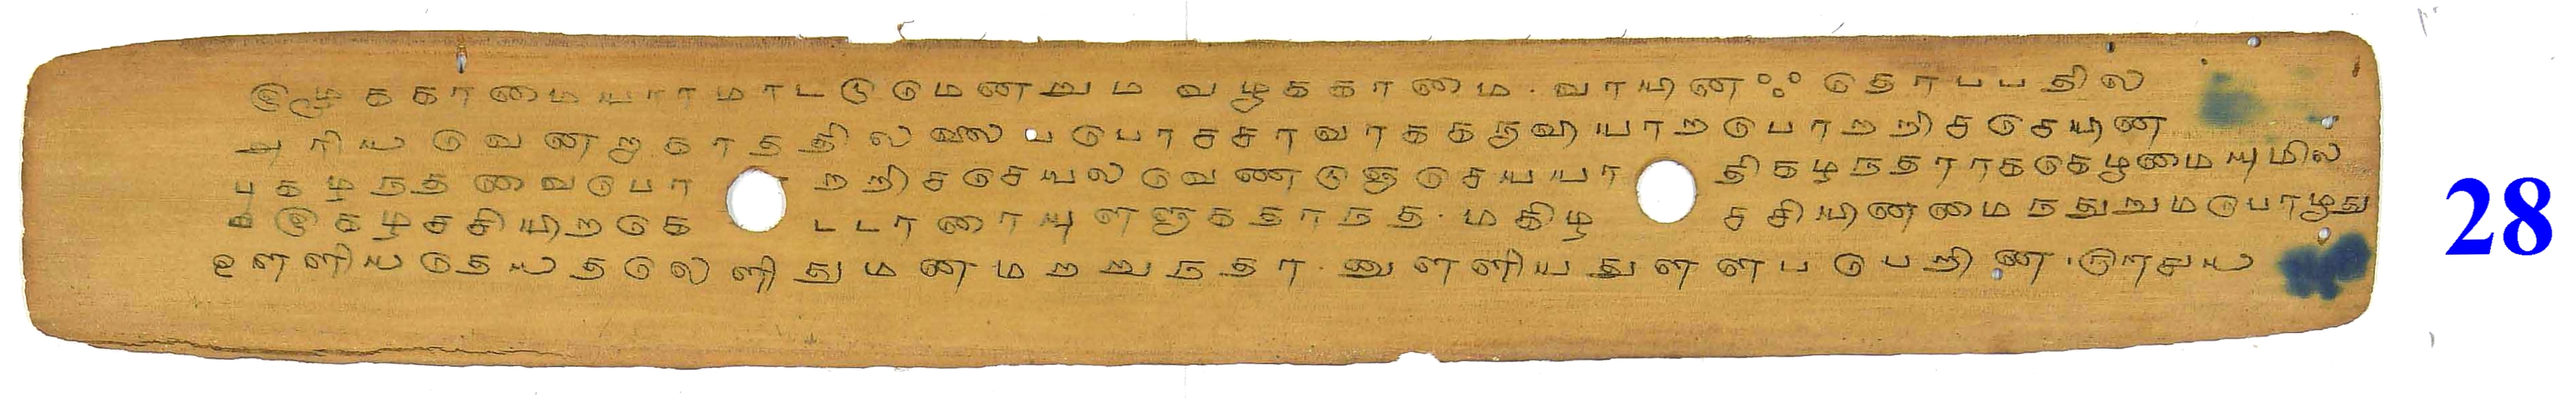 இழுககாமையாரமாடடெமனறும வழுககாமை . வாயினஃ தொபபதில
அரியவெனறாகாததிலலைபொசசாவாககருவியாறபொறறிசசெயின
புகழநதவைபொறறிசசெயலவெணடுஞசெயயாதிகழநதாரகெகழுமையுமில
இகழசசியிறகெடடாரையுளளுகதாநத . மகிழசசியினமைநதுறுமபொழுது
உளளியதெயதலெளிதுமனமறறுநதா . னுளளியதுளளபபெறின .
28